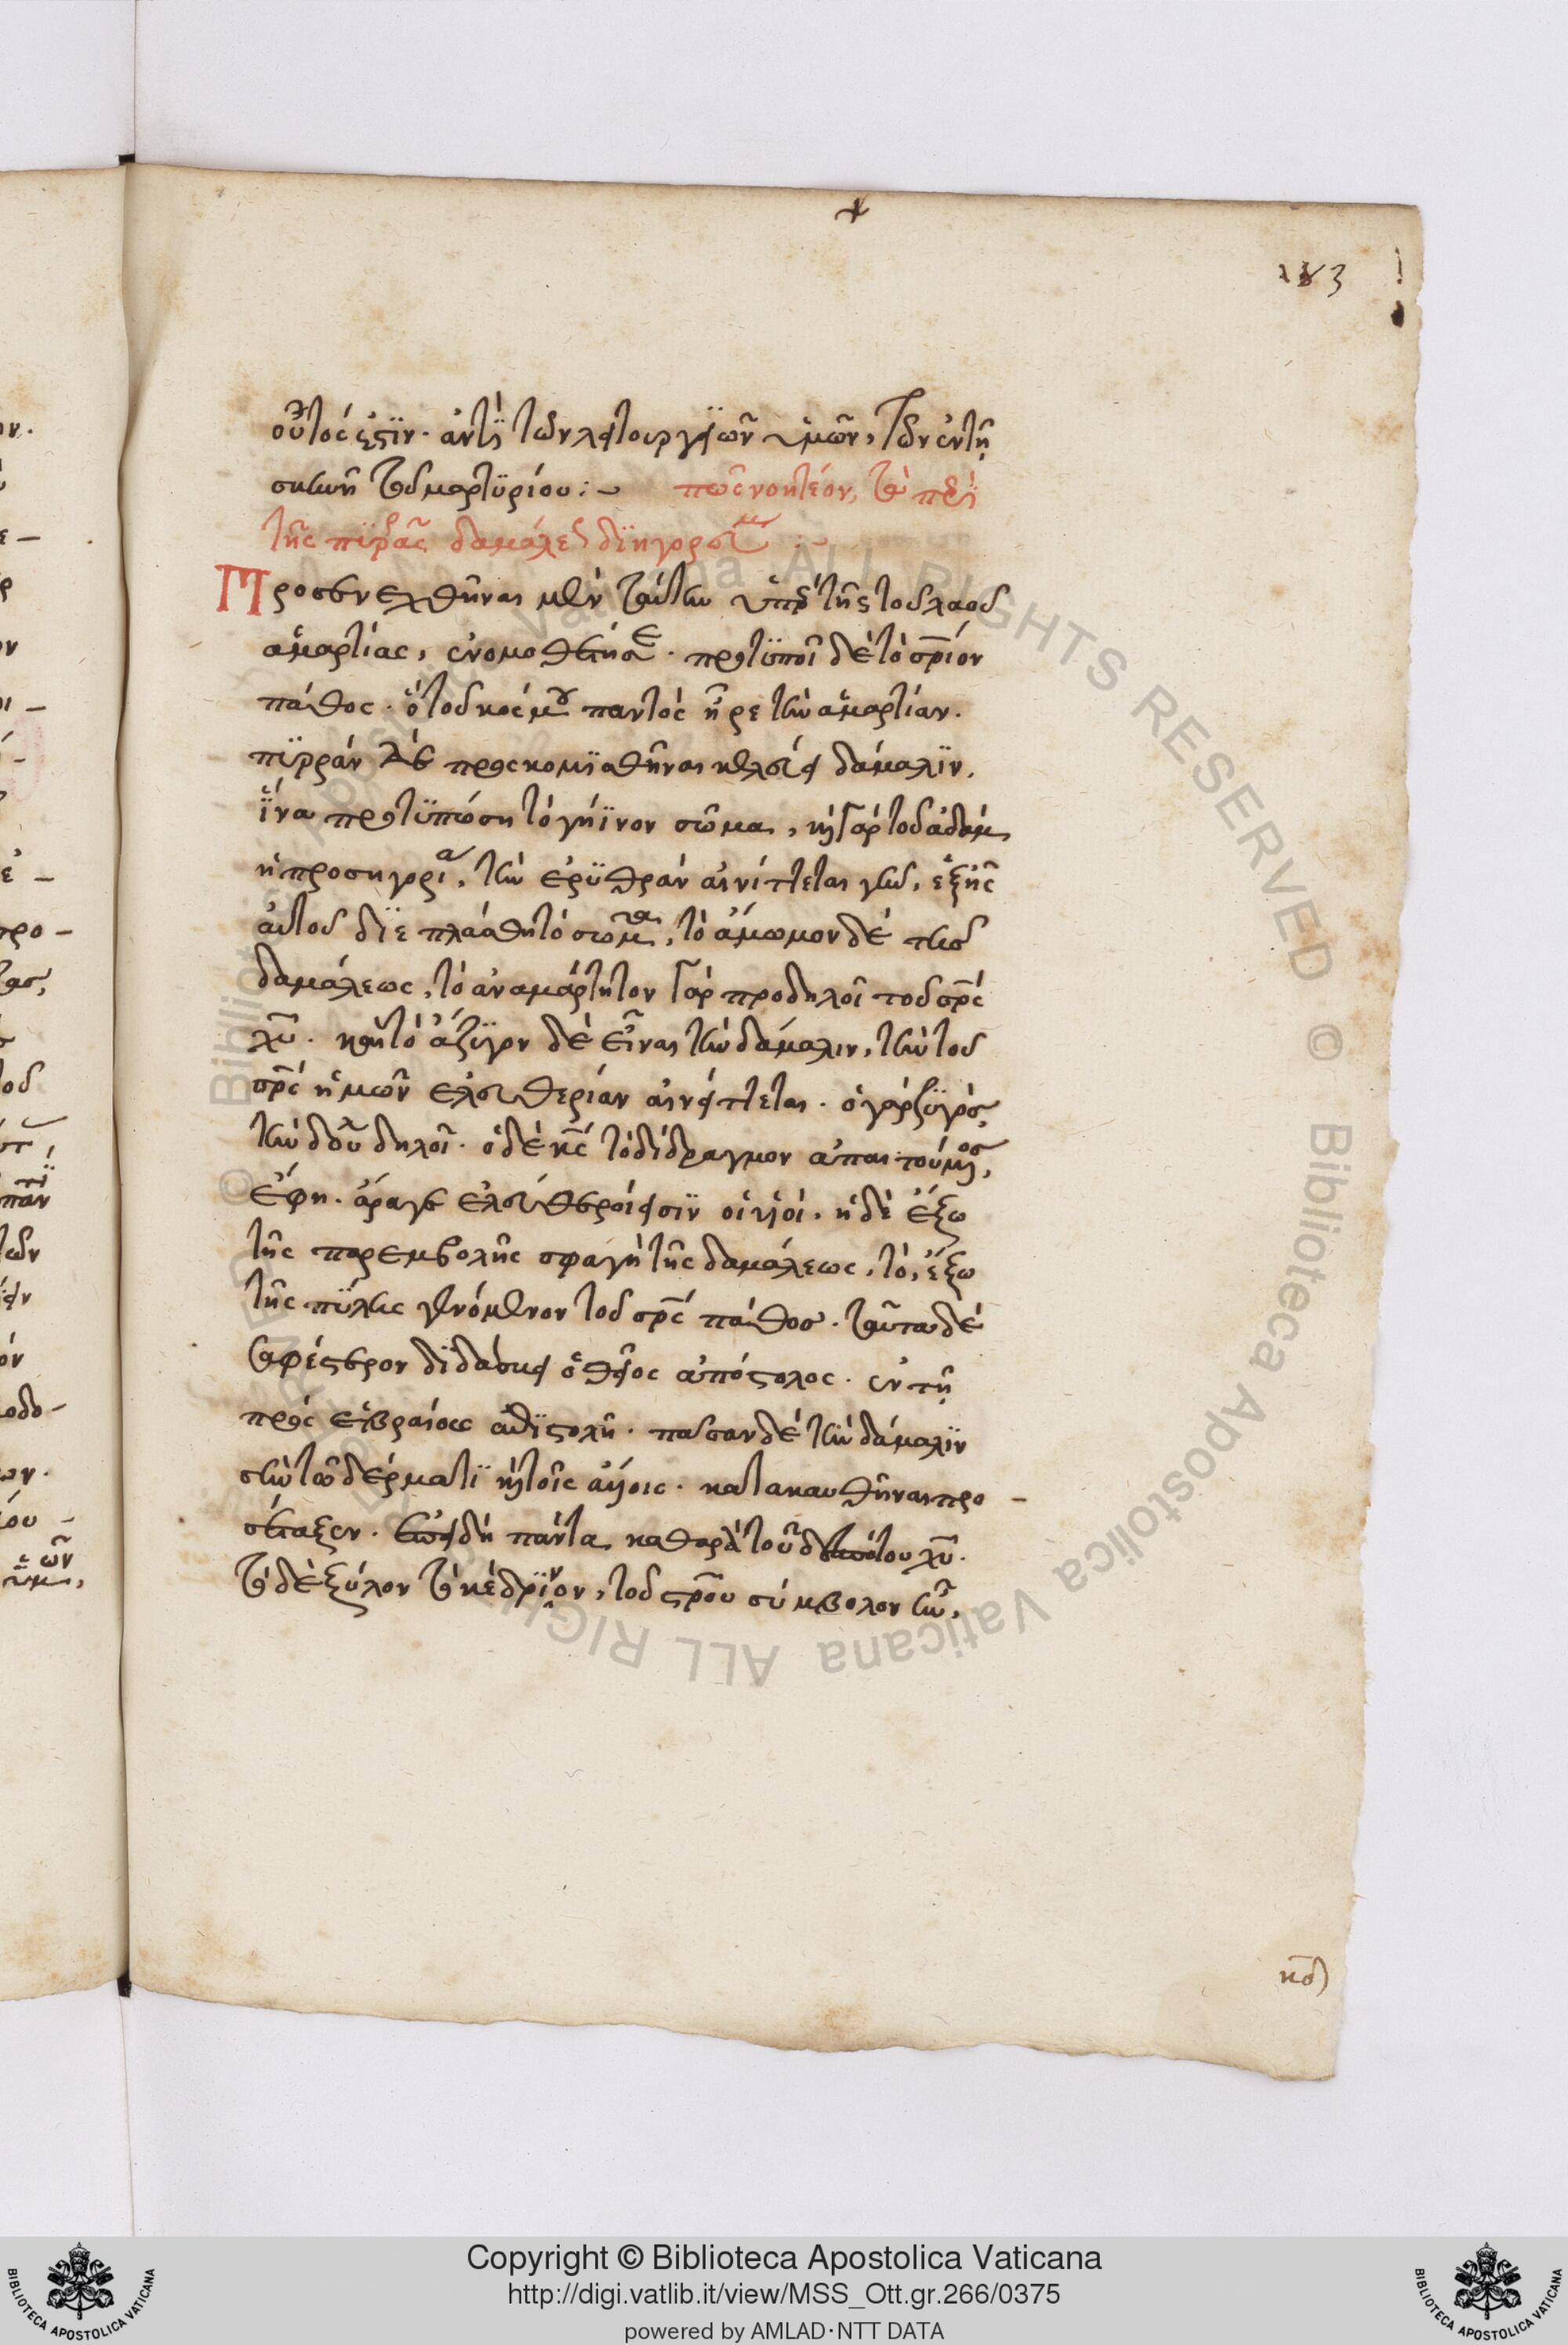 183
οὗτός ἐστϊν. ἀντῒ τῶν λειτουργϊῶν ὑμῶν, τῶν ἐν τῇ
σκηνῇ τοῦ μαρτϋρίου :~ πῶς νοητέον, τὰ περῒ
τῆς πϋρρᾶς δαμάλεως διηγορευμ :~
Προσενεχθῆναι μὲν ταύτην ὑπὲρ τῆς τοῦ λαοῦ
ἁμαρτίας, ἐνομοθέτησε. προτϋποῖ δὲ τὸ σρ̅ιον
πάθος. ὃ τοῦ κόσμου παντὸς ἦρε τὴν ἁμαρτίαν.
πϋρράν δὲ προσκομϊσθῆναι κελεύει δάμαλϊν,
ἵνα προτϋπώσῃ τὸ γήϊνον σῶμα, κὴ γὰρ τοῦ ἀδὰμ
ἡ προσηγορία, τὴν ἐρϋθρὰν αἰνίττεται γῆν, ἐξ ἧς
αὐτοῦ δϊεπλάσθη τὸ σῶμα, τὸ ἄμωμον δὲ τῆς
δαμάλεως, τὸ ἀναμάρτητον γὰρ προδηλοῖ τοῦ σρ̅ς
χυ̅. καὶ τὸ ἄζϋγον δὲ εἶναι τὴν δάμαλιν, τὴν τοῦ
σρ̅ς ἡμῶν ἐλευθερίαν αἰνείττεται. ὁ γὰρ ζϋγὸς,
τὴν δουλείαν δηλοῖ. ὁ δὲ κς̅ τὸ δίδραγμον ἀπαιτούμενος,
ἔφη. ἄραγε ἐλεύθεροί εἰσϊν οἱ υἱοί. ἡ δὲ ἔξω
τῆς παρεμβολῆς σφαγὴ τῆς δαμάλεως, τὸ, ἔξω
τῆς πϋλης γενόμενον τοῦ σρ̅ς πάθος. ταῦτα δὲ
σαφέστερον δϊδάσκει ὁ θεῖος ἀπόστολος. ἐν τῇ
πρὸς ἑβραίους ἐπϊστολῇ. πᾶσαν δὲ τὴν δάμαλϊν
σὺν τῷ δέρματϊ κὴ τοῖς ἀγίοις. κατακαυθῆναι προ -
σέταξεν. ἐπειδὴ πάντα καθαρὰ τοῦ δεσπότου χυ̅.
τὸ δὲ ξύλον τὸ κέδρϊνον, τοῦ σρ̅ου σύμβολον ἦν,
κδ̅
Copyright © Biblioteca Apostolica Vaticana
http://digi.vatlib.it/view/MSS_Ott.gr.266/0375
powered by AMLAD·NTT DATA